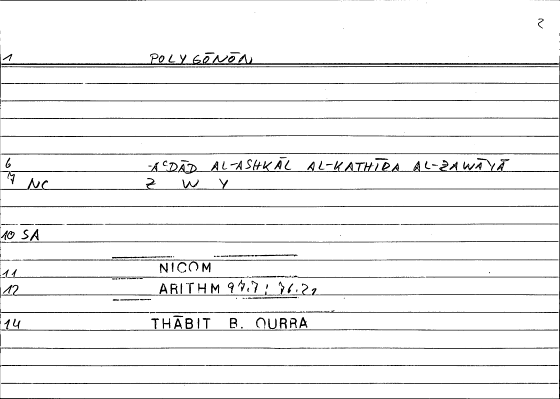 2
1 POLYGŌNŌN
6 -AʿDĀD AL-ASHKĀL AL-KATHĪRA AL-ZAWĀYĀ
7 NC Z W Y
10 SA
11 NICOM
12 ARITHM 97.7; 76.21
14 THĀBIT B. QURRA